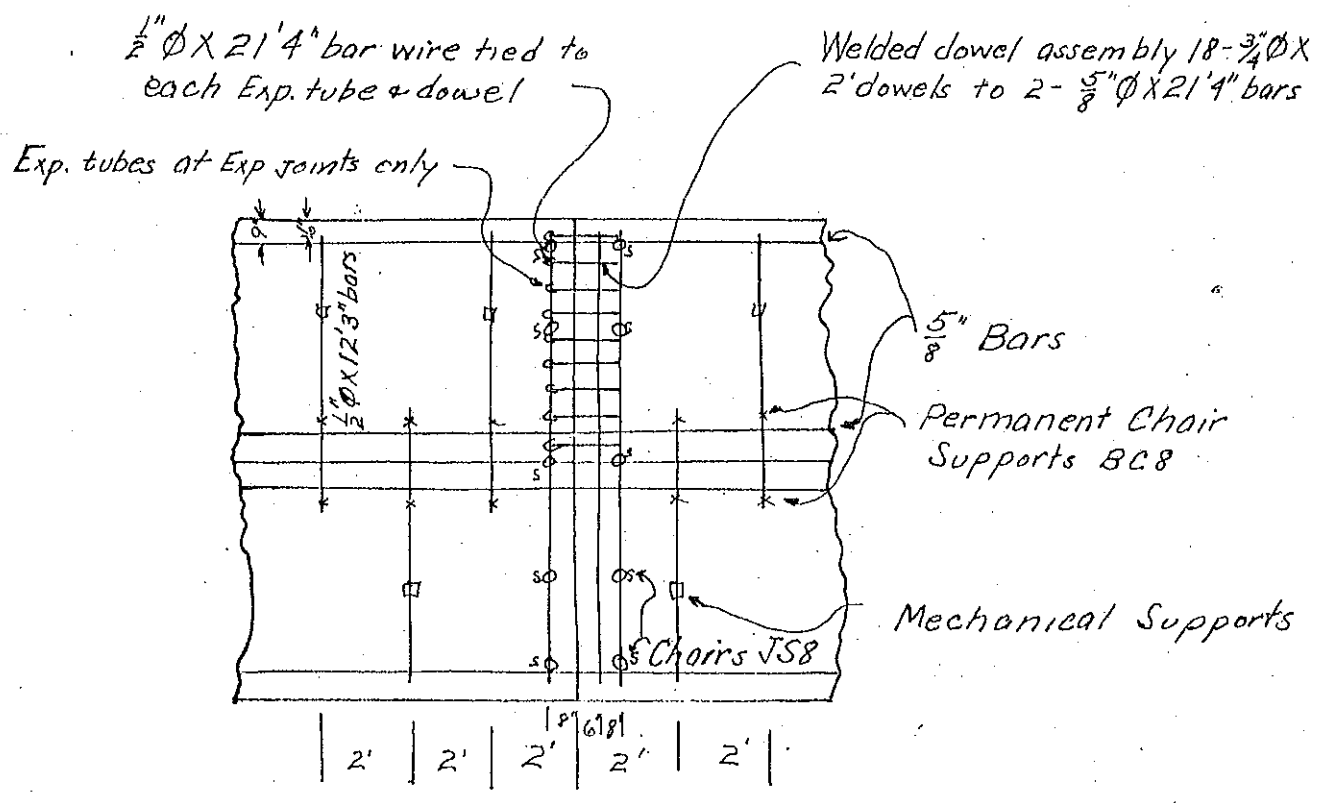 ½"Ø X 21'4" bar wire tied to
each Exp. tube & dowel
Welded dowel assembly 18-¾"Ø X
2' dowels to 2-⅝"Ø X 21'4" bars
Exp. tubes at Exp Joints only
9"
½"Ø X 12'3" bars
S
S
S
S
S
S
S
S
S
S
⅝" Bars
Permanent Chair
Supports BC8
Mechanical Supports
Chairs JS8
8" 6" 8"
2' 2' 2' 2' 2'